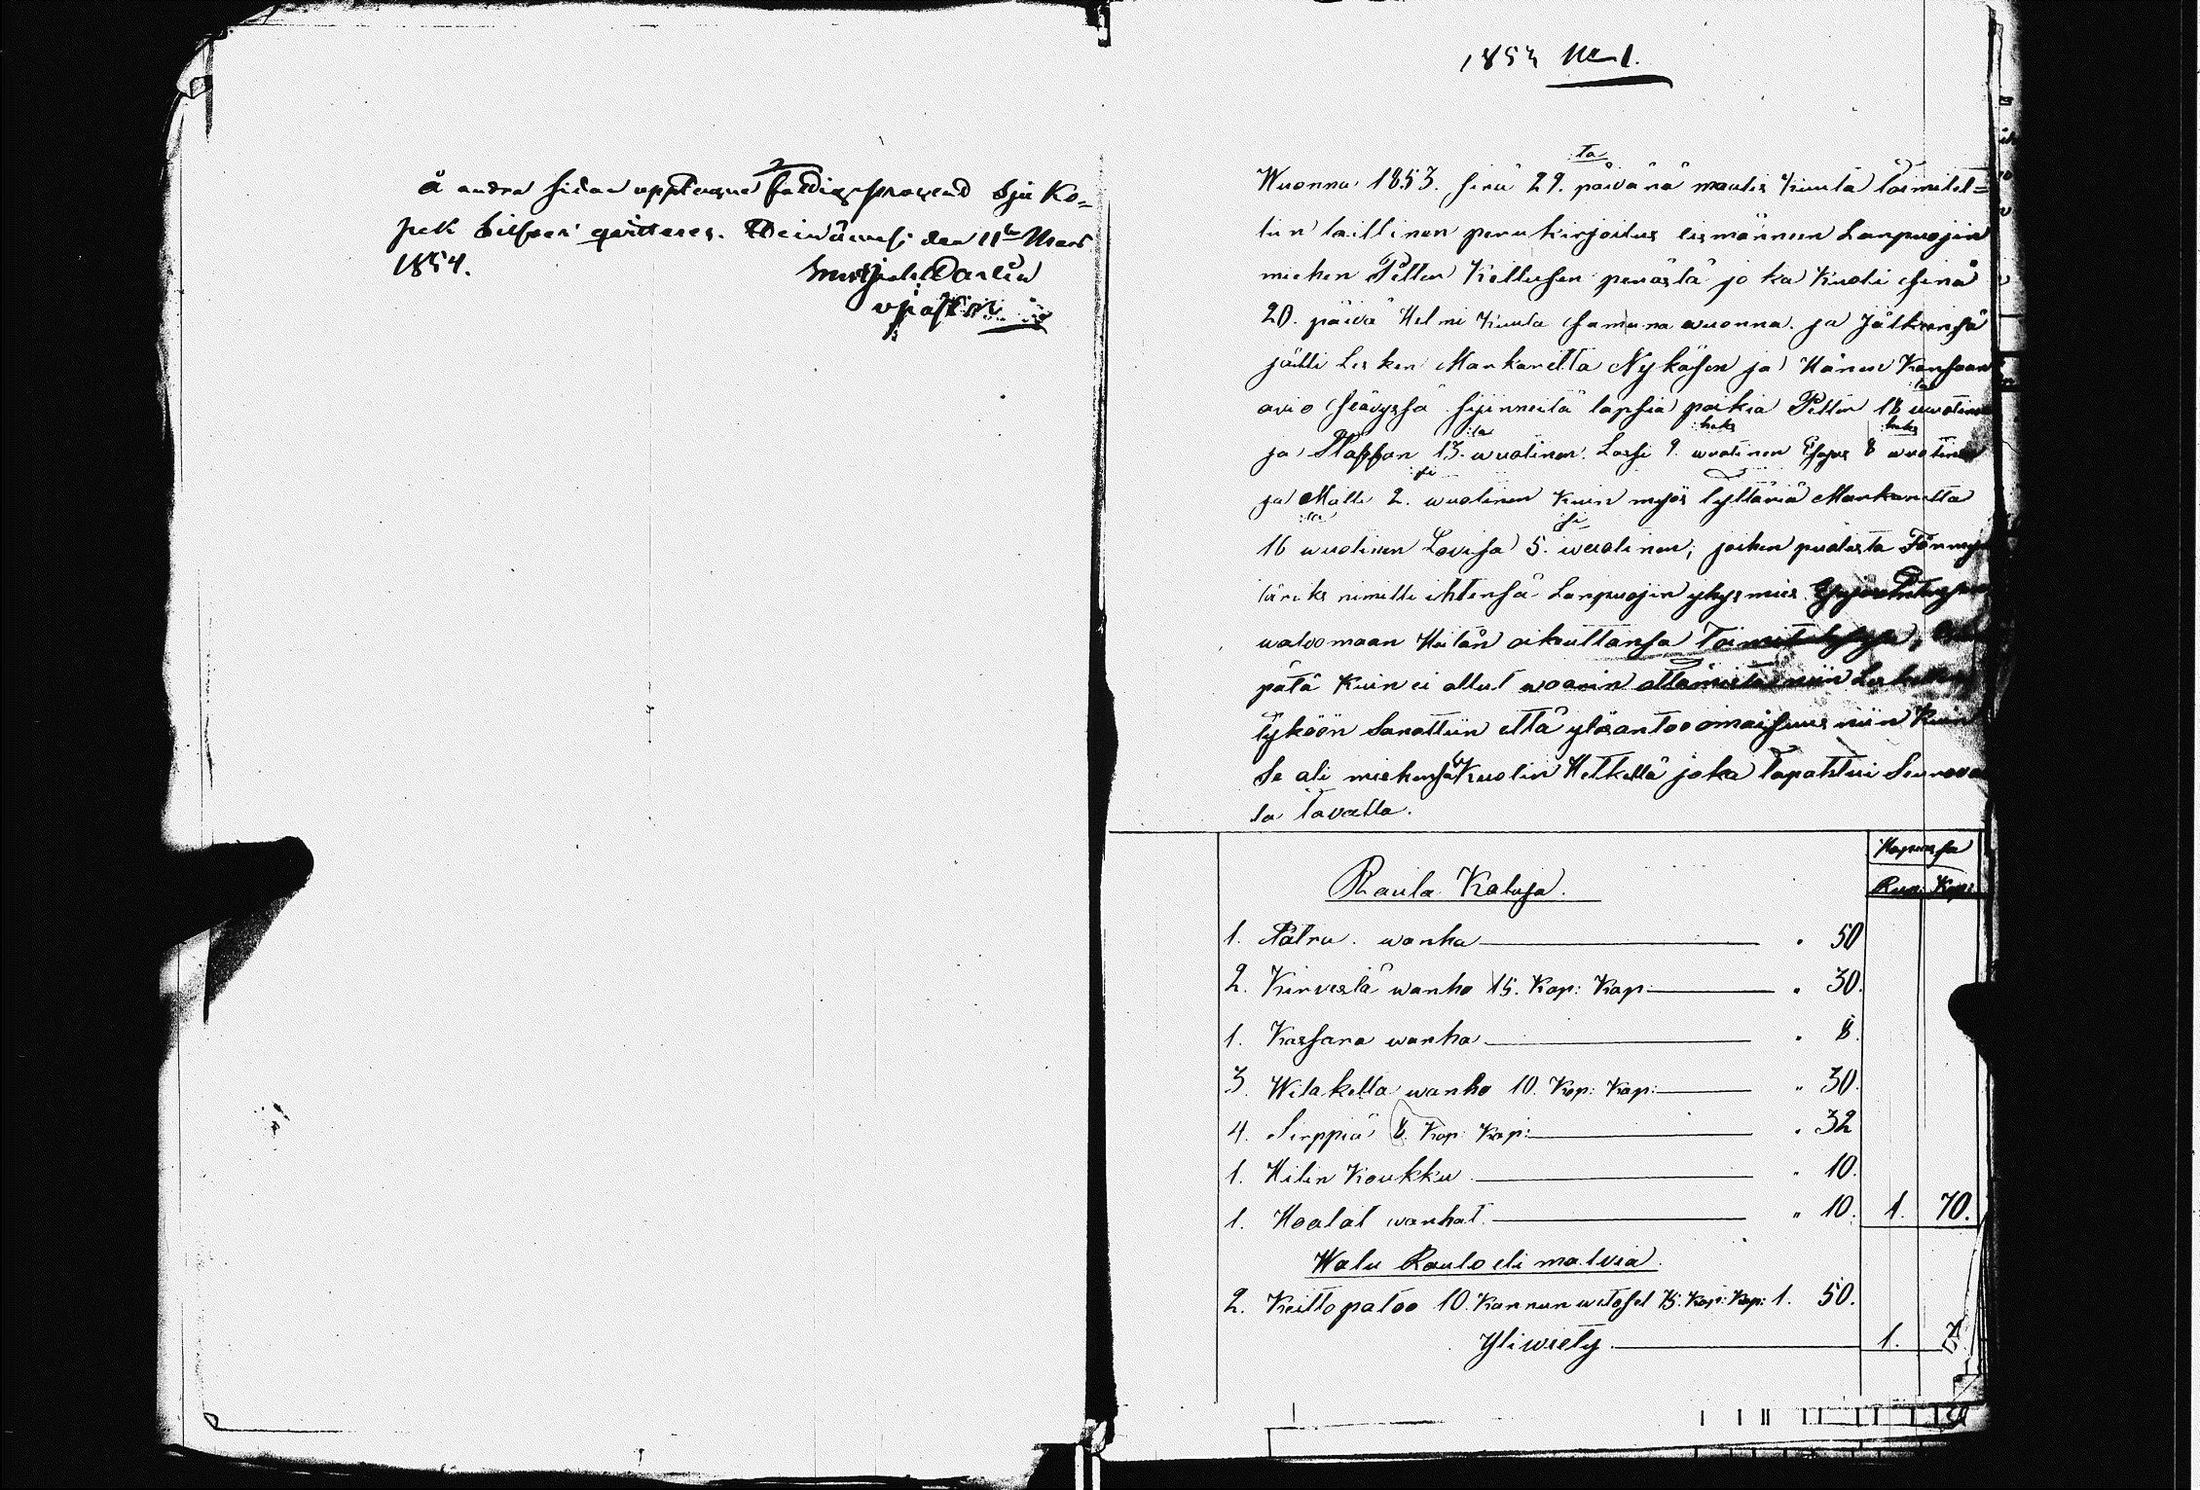 å andra sidan upptagne fattigprocent Sju Ko=
pek Silfver qvitteras. Pieksämäki den 11te Mars
1854.
1853 No 1.
Wuonna 1853. sinä 29.ta päivänä maalis kuuta toimitet=
tin laillinen perukirjoitus lesmännen Lanpuojin
miehen Pettu Kettusen perästä jo ka kuoli sinä
20. päivä Helmi kuuta samana wuonna. ja jälkeensä
jätti Lesken Markaretta Nykäsen ja Hänen Kansaan
avio säävyssä sijinneitä lapsia poikia Petter 18 wuotinen
ja Staffan 13. wuotinen. Lassi 9. wuotinen Esajas 8 wuotinen
ja Matti 2. wuotinen kuin myös tyttäriä Markaretta
16 wuotinen Lovisa 5. wuotinen, joihen puolesta
täriks nimitti ihtensä Lanpuojin yhysmies
walvomaan Heiän oikeuttansa
pätä kuin ei ollut woarin ottamista niin
tyköön Sanottiin että ylösantoo omaisuus niin kuin
Se oli miehensä Kuolin Hetkellä joka Tapahtui Seurava
la Tavalla.
Hopiassa
Rup: Kop:
Rauta Kaluja.
1. Patru. wanha " 50
2. Kirvestä wanho 15. Kop: Kap: " 30.
1. Kassara wanha " 8.
3. Witaketta wanho 10. Kop: Kap: " 30.
4. Sirppiä 8. Kop: Kap: " 32
1. Hilin Koukku " 10.
1. Hoalat wanhat " 10. 1. 70.
Walu Rauto eli malvia.
2. Keittopatoo 10. Kannun wetoset 75. Kop: Kap: 1. 50.
Yliwiety 1. 70.